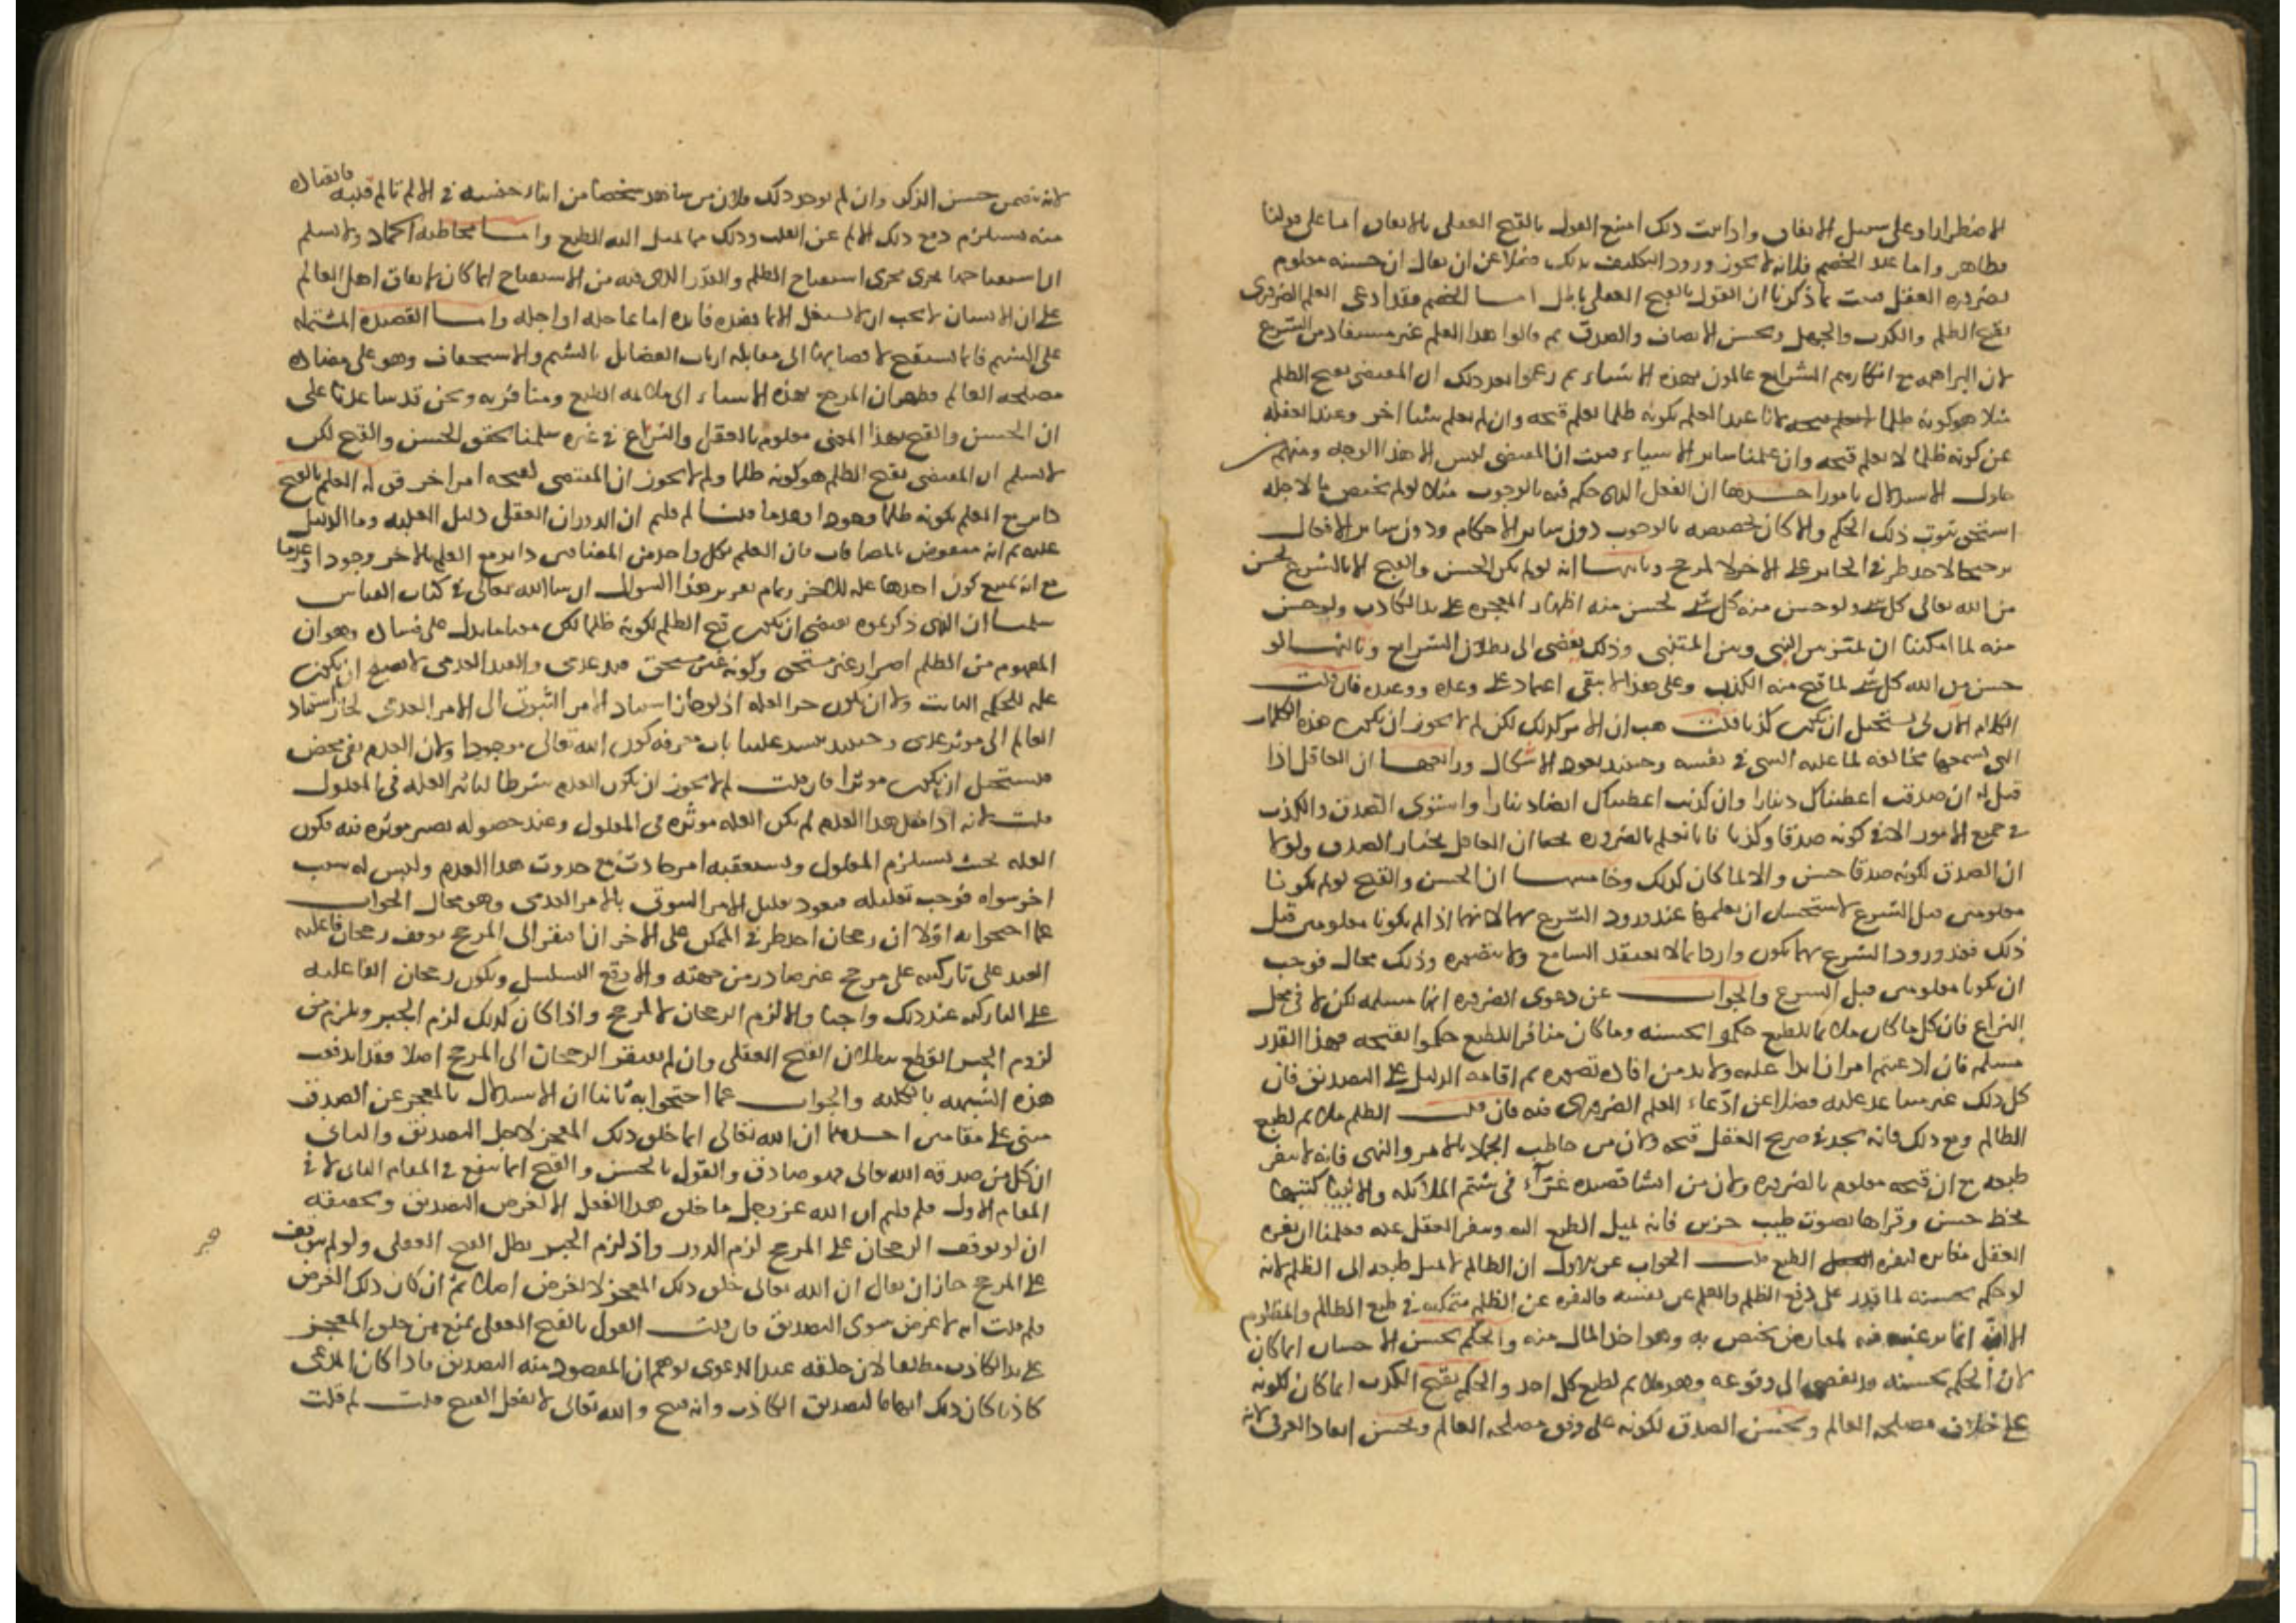 الاضطرار او على سبيل الاتفاق واذا ثبت ذلك امتنع القول بالقبح العقلى بالاتفاق اما على قولنا
فظاهر واما عند الخصم فلانه لا يجوز ورود التكليف بذلك فضلا عن ان يقال ان حسنه معلوم
بضروره العقل فثبت بما ذكرنا ان القول بالقبح العقلى باطل اما الخصم فقد ادعى العلم الضرورى
بقبح الظلم والكذب والجهل وبحسن الانصاف والصدق ثم قالوا هذا العلم غير مستفاد من الشرع
لان البراهمه مع انكارهم الشرايع عالمون بهذه الاشياء ثم زعموا بعد ذلك ان المقتضى لقبح الظلم
مثلا هو كونه ظلما لانا عند العلم بكونه ظلما نعلم قبحه وان لم نعلم شيئا اخر وعند الغفله
عن كونه ظلما لا نعلم قبحه وان علمنا ساير الاشياء فثبت ان المقتضى ليس الا هذا الوجه ومنهم من
حاول الاستدلال بامور احدها ان الفعل الذى حكم فيه بالوجوب مثلا لو لم يختص بما لاجله
استحق ثبوت ذلك الحكم والا كان تخصيصه بالوجوب دون ساير الاحكام ودون ساير الافعال
ترجيحا لاحد طرفى الجايز على الاخر لا لمرجح وثانيها انه لو لم يكن الحسن والقبح الا بالشرع لحسن
من الله تعالى كل شى ولو حسن منه كل شى لحسن منه اظهار المعجزه على يد الكاذب ولو حسن
منه لما امكننا ان نميز بين النبى وبين المتنبى وذلك يفضى الى بطلان الشرايع وثالثها لو
حسن من الله كل شى لما قبح منه الكذب وعلى هذا لا يبقى اعتماد على وعده ووعيده فان قلت
الكلام الازلى يستحيل ان يكون كذبا قلت هب ان الامر كذلك لكن لم لا يجوز ان يكون هذه الكلمات
التى نسمعها مخالفه لما عليه الشى فى نفسه وحينئذ يعود الاشكال ورابعها ان العاقل اذا
قيل له ان صدقت اعطيناك دينارا وان كذبت اعطيناك ايضا دينارا واستوى الصدق والكذب
فى جميع الامور الا فى كونه صدقا وكذبا فانا نعلم بالضروره ان العاقل يختار الصدق ولولا
ان الصدق لكونه صدقا حسن والا لما كان كذلك وخامسها ان الحسن والقبح لو لم يكونا
معلومين قبل الشرع لاستحال ان نعلمهما عند ورود الشرع بهما لانهما اذا لم يكونا معلومين قبل
ذلك فعند ورود الشرع بهما يكون واردا بما لا يعقله السامع ولا يتصوره وذلك محال فوجب
ان يكونا معلومين قبل الشرع والجواب عن دعوى الضروره انها مسلمه لكن لا فى محل
النزاع فان كل ما كان ملائما للطبع حكموا بحسنه وما كان منافرا للطبع حكموا بقبحه فهذا القدر
مسلم فان ادعيتم امرا زايدا عليه ولا بد من افاده تصوره ثم اقامه الدليل على التصديق فان
كل ذلك غير مساعد عليه فضلا عن ادعاء العلم الضرورى فيه فان قلت الظلم ملائم لطبع
الظالم ومع ذلك فانه يجد فى صريح العقل قبحه ولان من خاطب الجماد بالامر والنهى فانه لا ينفر
طبعه مع ان قبحه معلوم بالضروره ولان من انشا قصيده غراء فى شتم الملائكه والانبيا كتبها
بخط حسن وقراها بصوت طيب حزين فانه يميل الطبع اليه وينفر العقل عنه فعلمنا ان نفره
العقل مغايره لنفره الطبع قلت الجواب عن الاول ان الظالم لا يميل طبعه الى الظلم لانه
لو حكم بحسنه لما قدر على دفع الظلم عن نفسه فالنفره عن الظلم متمكنه فى طبع الظالم والمظلوم
الا انه انما يرغب فيه لعارض يختص به وهو اخذ المال منه والحكم بحسن الاحسان انما كان
لان الحكم بحسنه قد يفضى الى وقوعه وهو ملائم لطبع كل احد والحكم بقبح الكذب انما كان لكونه
على خلاف مصلحه العالم وبحسن الصدق لكونه على وفق مصلحه العالم وبحسن انقاذ الغرقى لانه
لانه يتضمن حسن الذكر وان لم يوجد ذلك ولان من شاهد شخصا من ابناء جنسه فى الالم تالم قلبه فانقاذه
منه يستلزم دفع ذلك الالم عن القلب وذلك مما يميل اليه الطبع واما مخاطبه الجماد ولا نسلم
ان استقباحها يجرى مجرى استقباح الظلم والقدر الذى فيه من الاستقباح انما كان لاتفاق اهل العالم
على ان الانسان لا يجب ان لا يشتغل الا بما يفيده فايده اما عاجله او اجله واما القصيده المشتمله
على الشتم فانما تستقبح لافضايها الى مقابله ارباب الفضايل بالشتم والاستخفاف وهو على مضاده
مصلحه العالم فظهر ان المرجع بهذه الاشياء الى ملائمه الطبع ومنافرته ونحن قد ساعدنا على
ان الحسن والقبح بهذا المعنى معلوم بالعقل والنزاع فى غيره سلمنا تحقق الحسن والقبح لكن
لا نسلم ان المقتضى لقبح الظلم هو كونه ظلما ولم لا يجوز ان المقتضى لقبحه امر اخر قوله العلم بالقبح
داير مع العلم بكونه ظلما وجودا وعدما قلنا لم قلتم ان الدوران العقلى دليل العليه وما الدليل
عليه ثم انه منقوض بالمضافات فان العلم بكل واحد من المضافين داير مع العلم بالاخر وجودا وعدما
مع انه يمتنع كون احدهما عله للاخر وتمام تقرير هذا السوال ان شا الله تعالى فى كتاب القياس
سلمنا ان الذى ذكرتموه يقتضى ان يكون قبح الظلم لكونه ظلما لكن معنا ما يدل على فساده وهو ان
المفهوم من الظلم اضرار غير مستحق وكونه غير مستحق قيد عدمى والقيد العدمى لا يصلح ان يكون
عله للحكم الثابت ولا ان يكون جز العله اذ لو جاز استناد الامر الثبوتى الى الامر العدمى لجاز استناد
العالم الى موثر عدمى وحينئذ ينسد علينا باب معرفه كون الله تعالى موجودا ولان العدم نفى محض
فيستحيل ان يكون موثرا فان قلت لم لا يجوز ان يكون العدم شرطا لتاثير العله فى المعلول
قلت لانه اذا فقد هذا العدم لم تكن العله موثره فى المعلول وعند حصوله تصير موثره فيه فكون
العله بحيث تستلزم المعلول وتستعقبه امر حادث مع حدوث هذا العدم وليس له سبب
اخر سواه فوجب تعليله فيعود تعليل الامر الثبوتى بالامر العدمى وهو محال الجواب
عما احتجوا به اولا ان رجحان احد طرفى الممكن على الاخر ان افتقر الى المرجح توقف رجحان فاعليه
العبد على تاركيته على مرجح غير صادر من جهته والا وقع التسلسل ويكون رجحان الفاعليه
على التاركيه عند ذلك واجبا والا لزم الرجحان لا لمرجح واذا كان كذلك لزم الجبر ويلزم من
لزوم الجبر القطع ببطلان القبح العقلى وان لم يفتقر الرجحان الى المرجح اصلا فقد اندفعت
هذه الشبهه بالكليه والجواب عما احتجوا به ثانيا ان الاستدلال بالمعجز عن الصدق
مبنى على مقامين احدهما ان الله تعالى انما خلق ذلك المعجز لاجل التصديق والثانى
ان كل من صدقه الله تعالى فهو صادق والقول بالحسن والقبح انما ينفع فى المقام الثانى لا فى
المقام الاول فلم قلتم ان الله عز وجل ما خلق هذا الفعل الا لغرض التصديق وتحقيقه
ان لو توقف الرجحان على المرجح لزم الدور واذ لزم الجبر بطل القبح العقلى ولو لم يتوقف
على المرجح جاز ان يقال ان الله تعالى خلق ذلك المعجز لا لغرض اصلا ثم ان كان ذلك الغرض
فلم قلت انه لا غرض سوى التصديق فان قلت القول بالقبح العقلى يمنع من خلق المعجز
على يد الكاذب مطلقا لان خلقه عند الدعوى يوهم ان المقصود منه التصديق فاذا كان المدعى
كاذبا كان ذلك ايهاما لتصديق الكاذب وانه قبيح والله تعالى لا يفعل القبيح قلت لم قلت